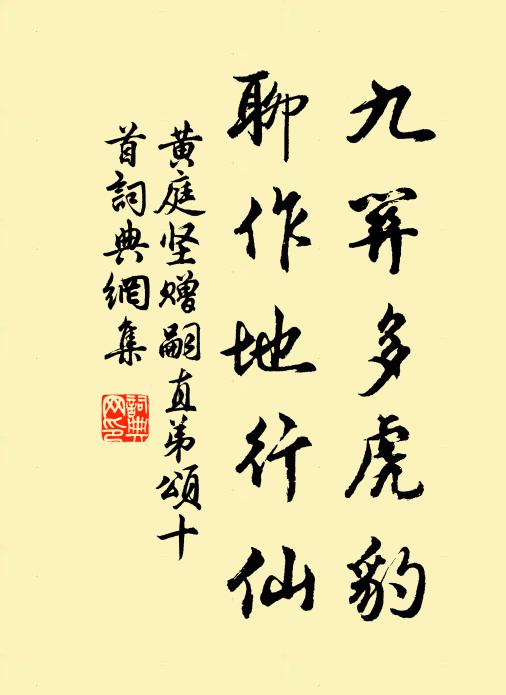 九關多虎豹
聊作地行仙
黄庭坚赠嗣直弟颂十
首詞典網集
詞典
网印